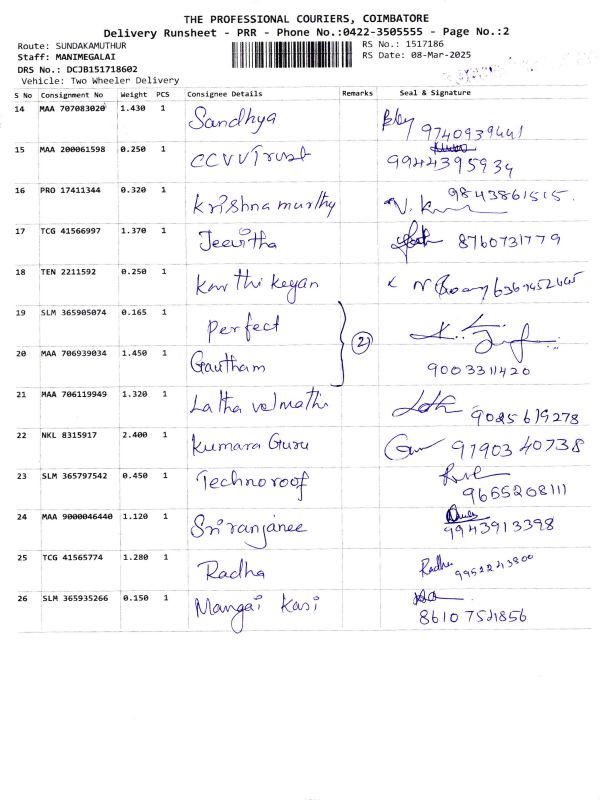 THE PROFESSIONAL COURIERS, COIMBATORE
Delivery Runsheet - PRR - Phone No.:0422-3505555 - Page No.:2
Route: SUNDAKAMUTHUR RS No.: 1517186
Staff: MANIMEGALAI RS Date: 08-Mar-2025
DRS No.: DCJB151718602
Vehicle: Two Wheeler Delivery
S No Consignment No Weight PCS Consignee Details Remarks Seal & Signature
14 MAA 707083020 1.430 1 Sandhya 9740939441
15 MAA 200061598 0.250 1 CCVV Trust 9944395934
16 PRO 17411344 0.320 1 Krishna murthy 9843861515.
17 TCG 41566997 1.370 1 Jeevitha 8760731779
18 TEN 2211592 0.250 1 Karthikeyan
19 SLM 365905074 0.165 1 Perfect
20 MAA 706939034 1.450 1 Gautham 2 9003311420
21 MAA 706119949 1.320 1 Latha valmathi 9025619278
22 NKL 8315917 2.400 1 Kumara Guru 97903 40738
23 SLM 365797542 0.450 1 Technoroof 9655208111
24 MAA 9000046440 1.120 1 Sriranjanee 9943913398
25 TCG 41565774 1.280 1 Radha Radha 9952243800
26 SLM 365935266 0.150 1 Mangai Kasi 86107521856